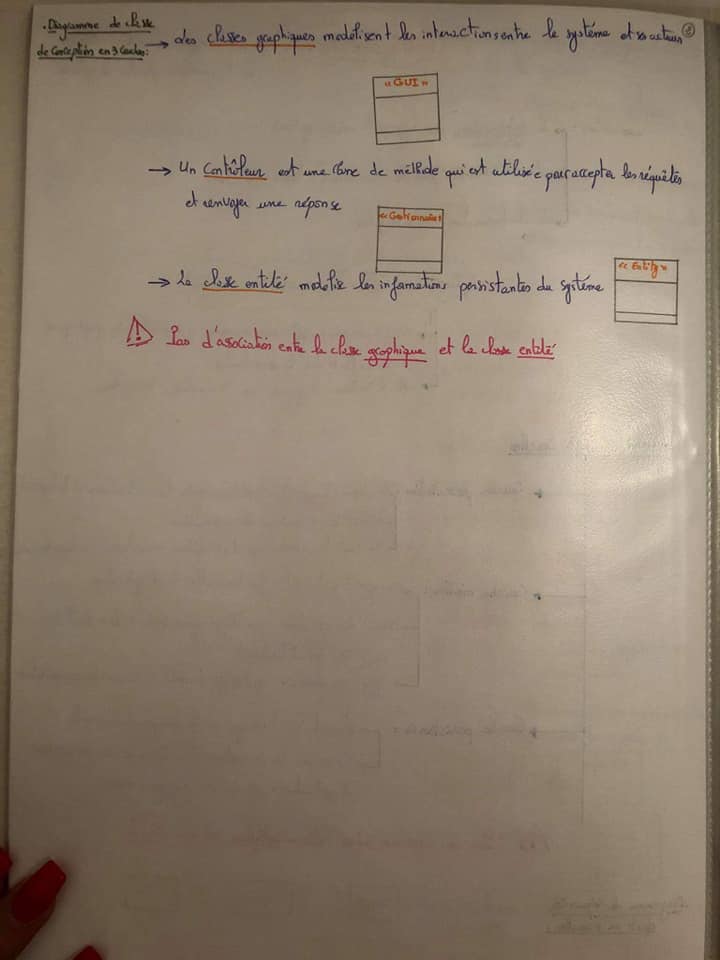 . Diagramme de classe
de Conception en 3 Couches:
→ des classes graphiques modélisent les interactions entre le système et ses acteurs
« GUI »
→ Un Contrôleur est une classe de méthode qui est utilisée pour accepter les réquêtes
et renvoyer une réponse
« Gestionnaire »
→ La classe entité modélise les informations persistantes du système
« Entity »
⚠ Pas d'association entre la classe graphique et la classe entité